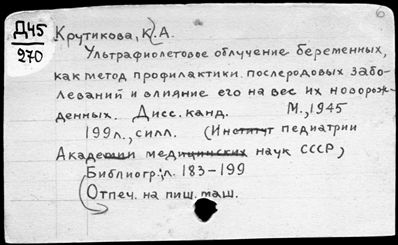 Д45
270
6
Крутикова, К. А.
Ультрафиолетовое облучение беременных,
как метод профилактики послеродовых забо-
леваний и влияние его на вес их новорож-
денных. Дисс. канд. М., 1945
199л., с илл. (Институт педиатрии
Академии медицинских наук СССР)
Библиогр.: л. 183-199
Отпеч. на пиш. маш.